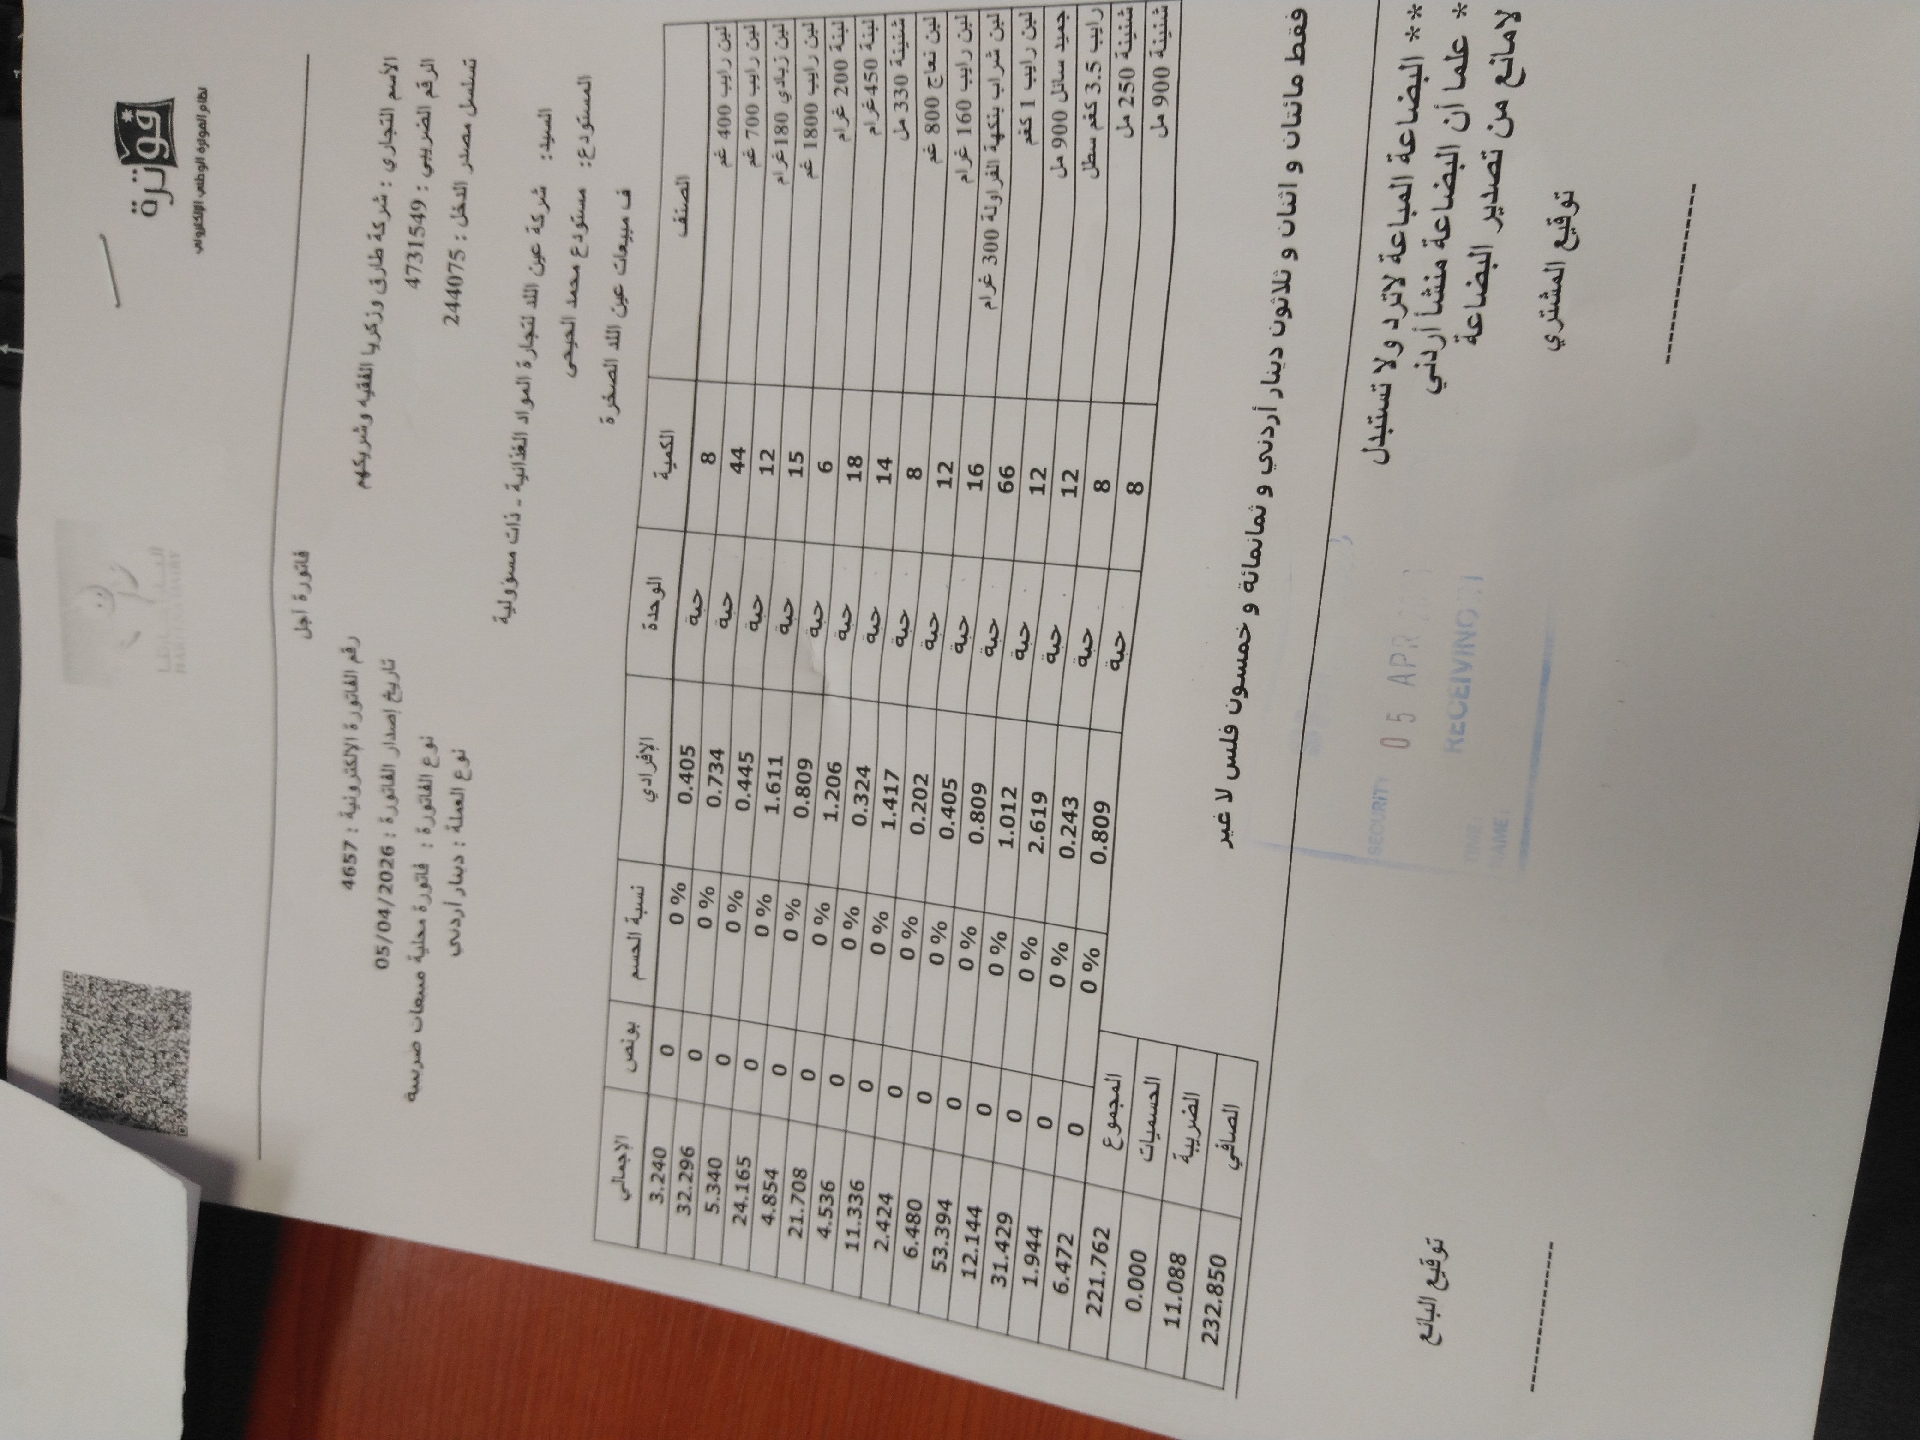 فوترة
نظام الفوترة الوطني الإلكتروني
فاتورة اجل
الأسم التجاري : شركة طارق وزكريا الفقيه وشريكهم
رقم الفاتورة الإلكترونية : 4657
الرقم الضريبي : 4731549
تاريخ إصدار الفاتورة : 05/04/2026
تسلسل مصدر الدخل : 244075
نوع الفاتورة : فاتورة محلية مبيعات ضريبية
نوع العملة : دينار أردني
السيد: شركة عين اللد لتجارة المواد الغذائية - ذات مسؤولية
المستودع: مستودع محمد الحيحي
ف مبيعات عين اللد الصخرة
الصنف الكمية الوحدة الإفرادي نسبة الحسم بونص الإجمالي
لبن رايب 400 غم 8 حبة 0.405 0 % 0 3.240
لبن رايب 700 غم 44 حبة 0.734 0 % 0 32.296
لبن زبادي 180غرام 12 حبة 0.445 0 % 0 5.340
لبن رايب 1800 غم 15 حبة 1.611 0 % 0 24.165
لبنة 200 غرام 6 حبة 0.809 0 % 0 4.854
لبنة 450غرام 18 حبة 1.206 0 % 0 21.708
شنينة 330 مل 14 حبة 0.324 0 % 0 4.536
لبن نعاج 800 غم 8 حبة 1.417 0 % 0 11.336
لبن رايب 160 غرام 12 حبة 0.202 0 % 0 2.424
لبن شراب بنكهة الفراولة 300 غرام 16 حبة 0.405 0 % 0 6.480
لبن رايب 1 كغم 66 حبة 0.809 0 % 0 53.394
جميد سائل 900 مل 12 حبة 1.012 0 % 0 12.144
رايب 3.5 كغم سطل 12 حبة 2.619 0 % 0 31.429
شنينة 250 مل 8 حبة 0.243 0 % 0 1.944
شنينة 900 مل 8 حبة 0.809 0 % 0 6.472
المجموع 221.762
الحسميات 0.000
الضريبة 11.088
الصافي 232.850
فقط مائتان و اثنان و ثلاثون دينار أردني و ثمانمائة و خمسون فلس لا غير
** البضاعة المباعة لاترد ولا تستبدل
* علما أن البضاعة منشأ أردني
لامانع من تصدير البضاعة
SECURITY 05 APR
RECEIVING
TIME:
NAME:
توقيع المشتري
توقيع البائع